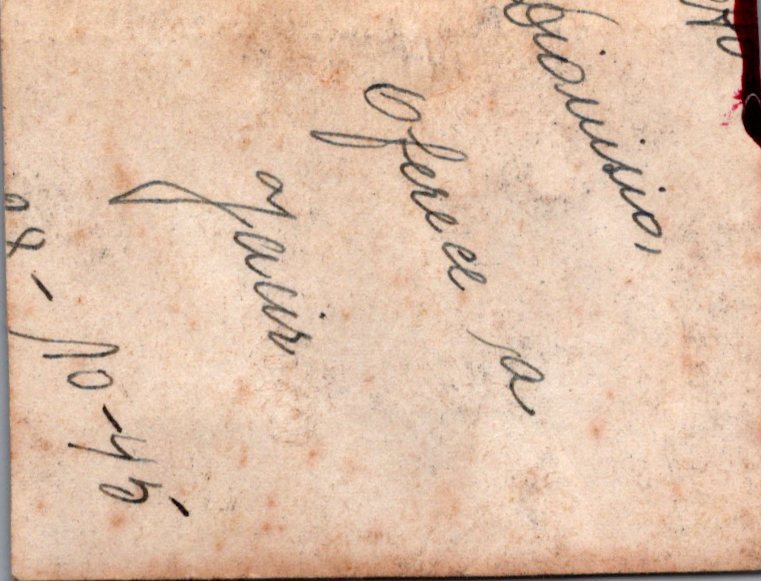 Dionisio,
Oferece o
Jair
28-10-45